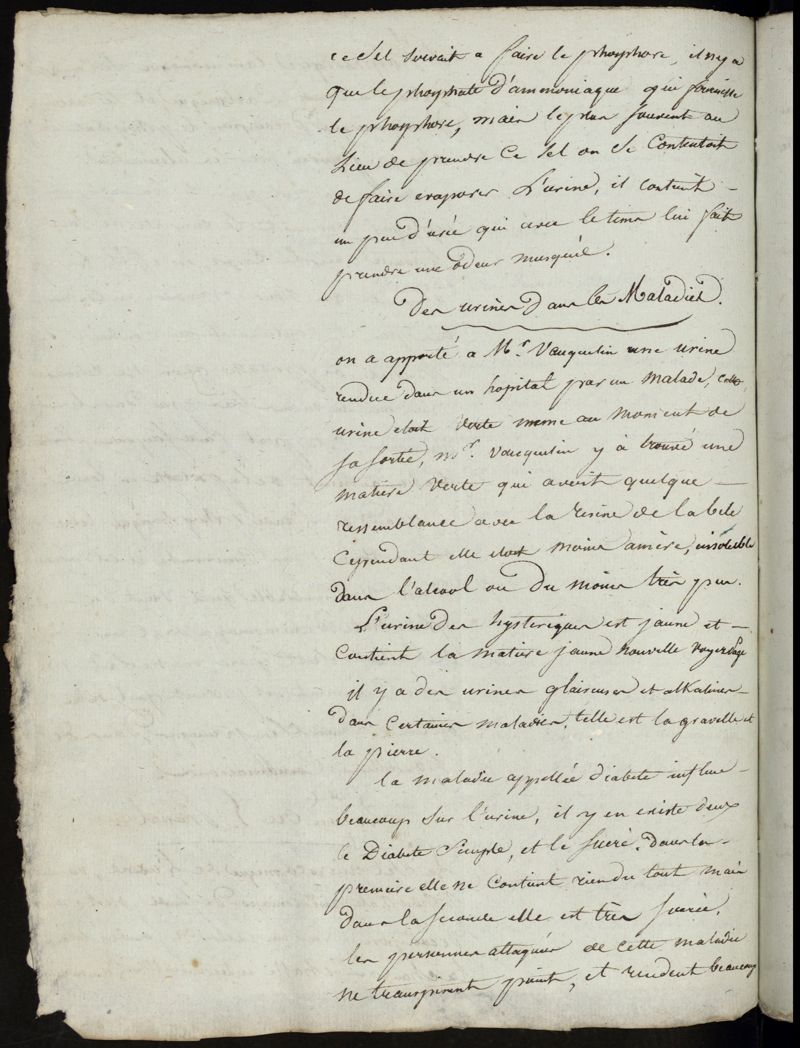 ce sel servait a faire le phosphore, il n'y a
que le phosphate d'ammoniaque qui fournisse
le phosphore, mais le plus souvent au
lieu de prendre ce sel on se contentait
de faire evaporer l'urine, il contient
un peu d'urée qui avec le tems lui fait
prendre une odeur musquée.
Des urines dans les Maladies.
on a apporté a Mr. Vauquelin une urine
rendue dans un hopital par un malade, cette
urine etoit verte meme au moment de
sa sortie, mr. vauquelin y à trouvé une
matiere verte qui avoit quelque
ressemblance avec la resine de la bile
Cependant elle etoit moins amère, insoluble
dans l'alcool ou du moins très peu.
L'urine des hysteriques est jaune et
contient la matiere jaune nouvelle voyez Page
il y a des urines glaireuses et alkalines
dans certaines maladies, telle est la gravelle et
la pierre.
la maladie appellée diabete influe
beaucoup sur l'urine, il y en existe deux
le Diabete Simple, et le sucré. dans la
premiere elle ne contient rien du tout mais
dans la seconde elle est très sucrée,
les personnes attaquées de cette maladie
ne transpirent point, et rendent beaucoup